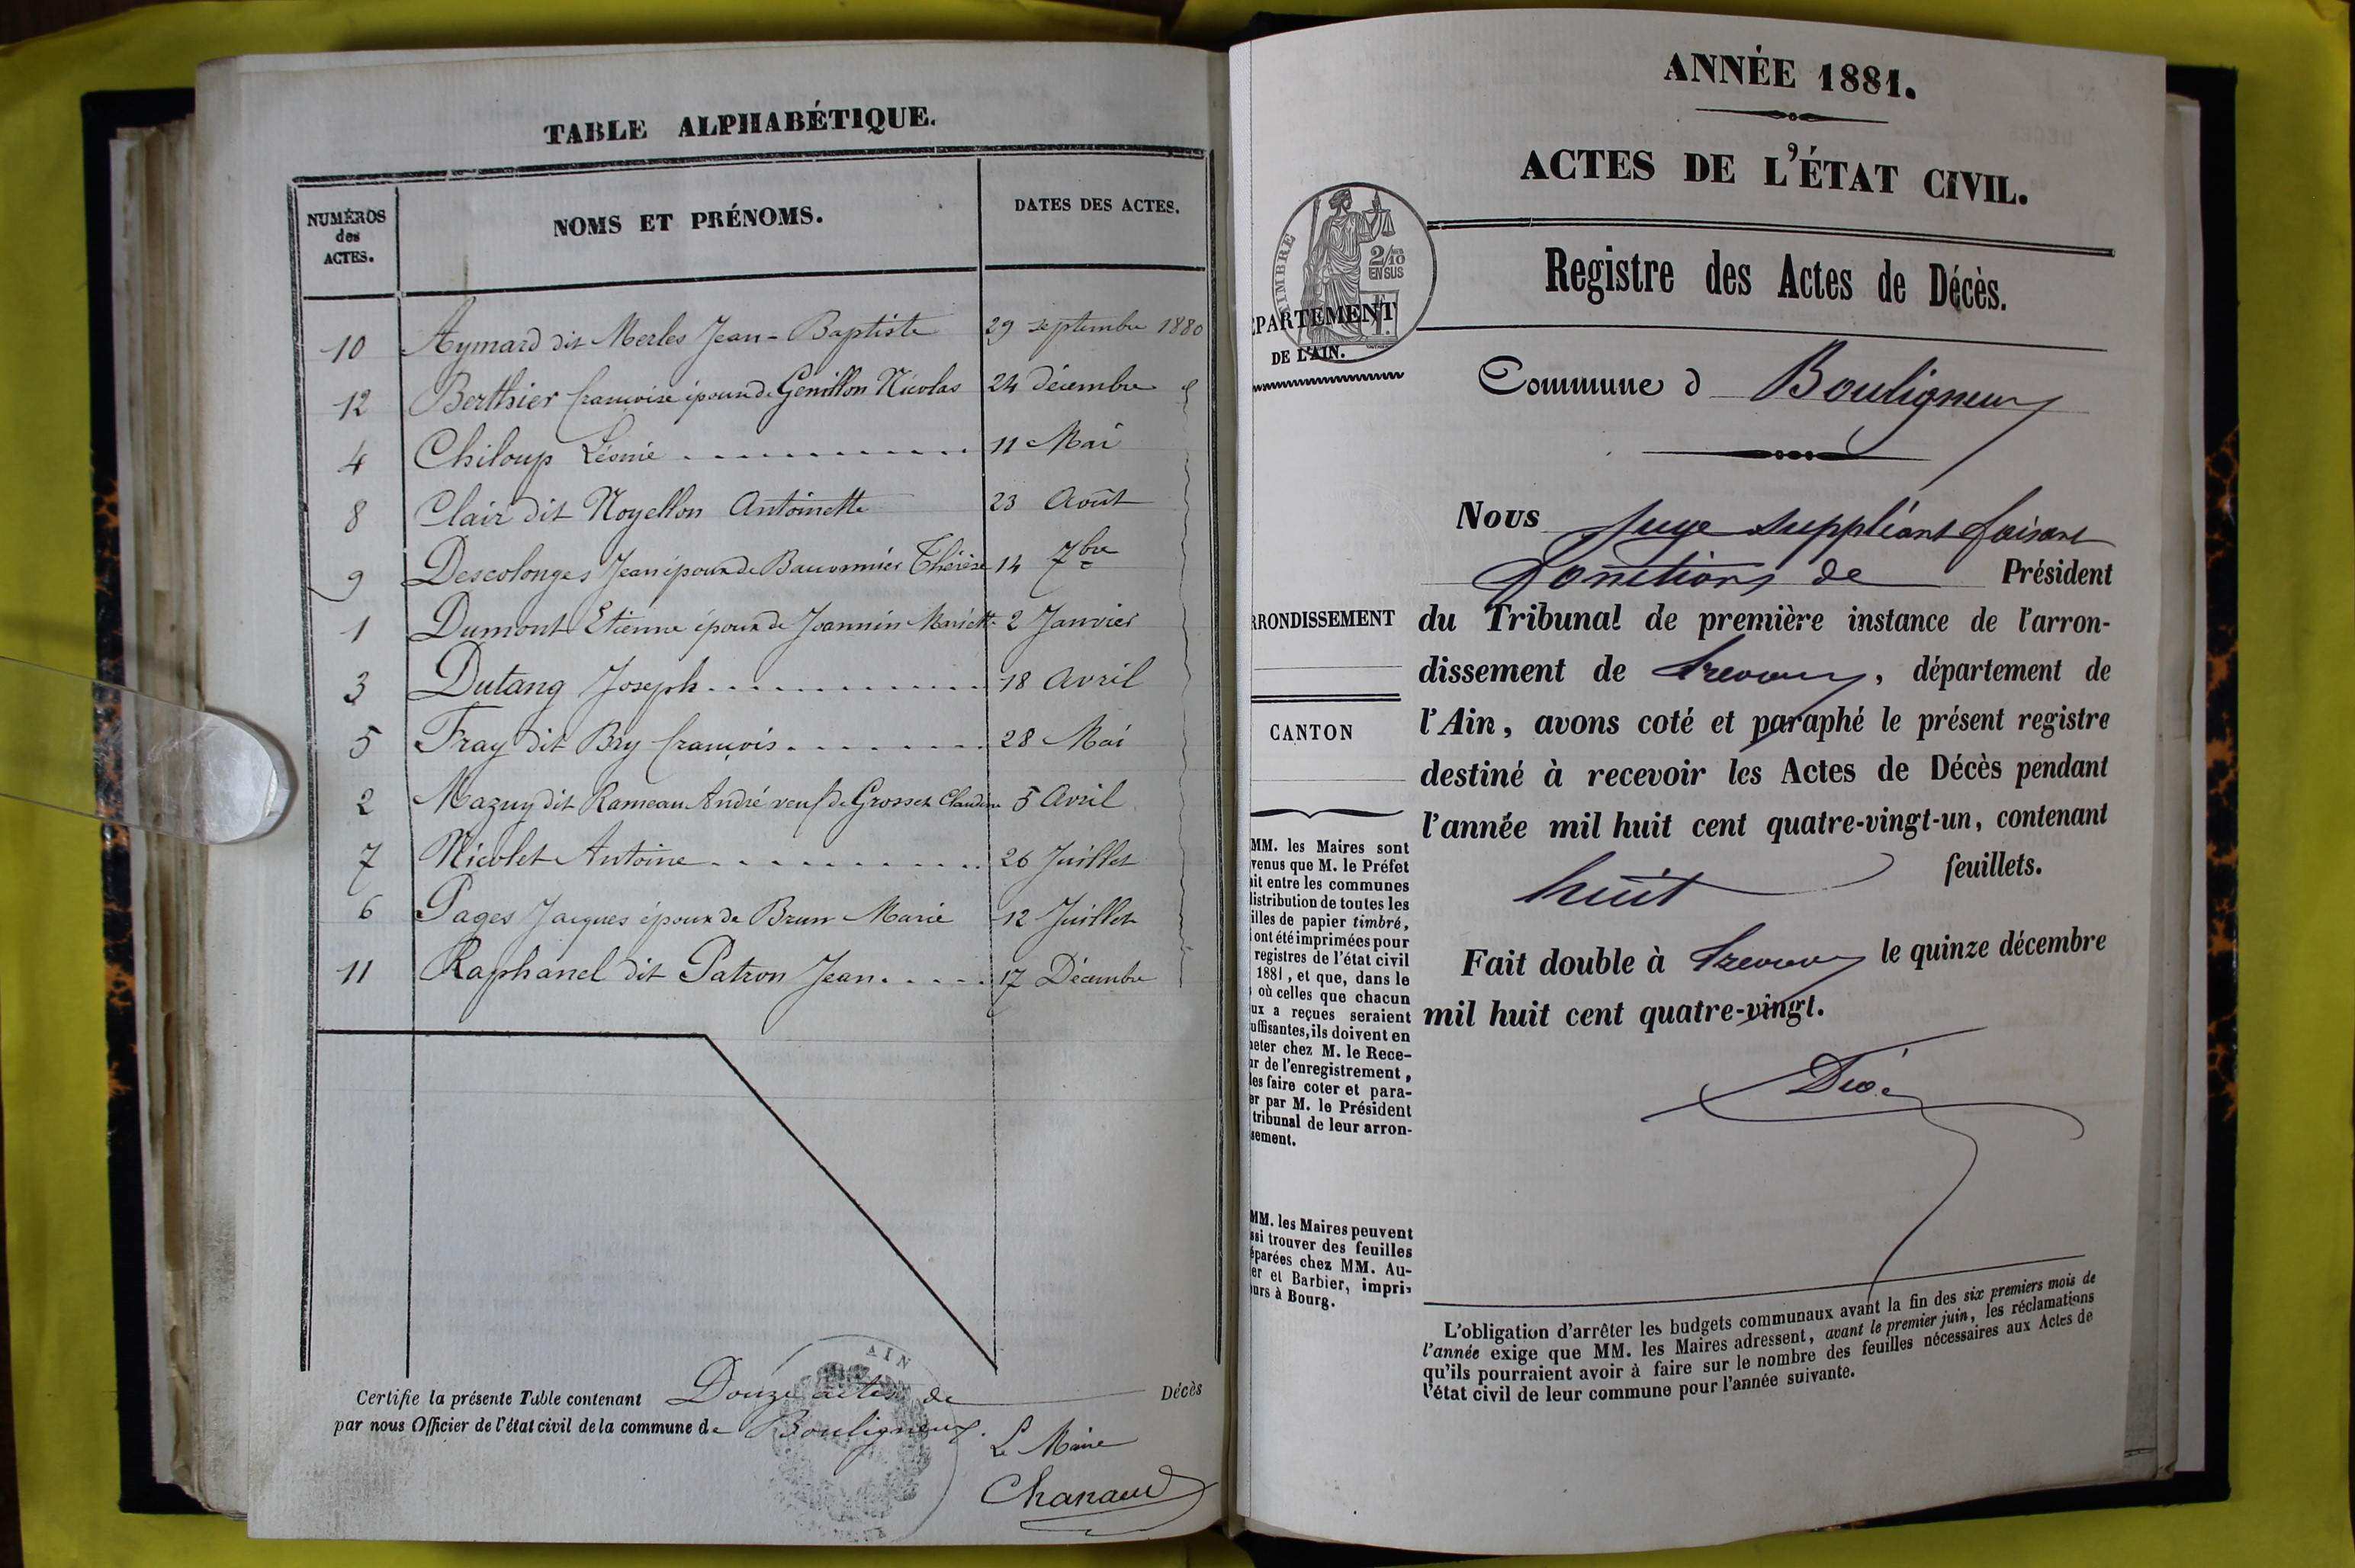 TABLE ALPHABÉTIQUE.
NUMÉROS
des
ACTES.
NOMS ET PRÉNOMS.
DATES DES ACTES.
10 Aymard dit Merles Jean-Baptiste 29 septembre 1880
12 Berthier françoise épouse de Genillon Nicolas 24 décembre
4 Chiloup Léonie 11 Mai
8 Clair dit Noyellon Antoinette 23 Août
9 Descolonges Jean époux de Bauvernier Thérèse 14 7bre
1 Dumont Etienne époux de Joannin Mariette 2 Janvier
3 Dutang Joseph 18 Avril
5 Fray dit Bry françois 28 Mai
2 Mazuy dit Rameau André veuf de Grosset Claudine 5 Avril
7 Nicolet Antoine 26 Juillet
6 Pages Jacques époux de Brun Marie 12 Juillet
11 Raphanel dit Patron Jean 17 Décembre
Certifie la présente Table contenant Douze actes de Décès
par nous Officier de l'état civil de la commune de Bouligneux.
AIN
Le Maire
Chanaud
ANNÉE 1881.
ACTES DE L'ÉTAT CIVIL.
TIMBRE
2/10
EN SUS
Registre des Actes de Décès.
ÉPARTEMENT
DE L'AIN.
Commune d Bouligneux
Nous Juge suppléant faisant
fonctions de Président
RRONDISSEMENT
du Tribunal de première instance de l'arron-
dissement de Trevoux, département de
CANTON
l'Ain, avons coté et paraphé le présent registre
destiné à recevoir les Actes de Décès pendant
l'année mil huit cent quatre-vingt-un, contenant
huit feuillets.
Fait double à Trevoux le quinze décembre
mil huit cent quatre-vingt.
MM. les Maires sont
venus que M. le Préfet
ait entre les communes
distribution de toutes les
illes de papier timbré,
ont été imprimées pour
registres de l'état civil
1881, et que, dans le
où celles que chacun
ux a reçues seraient
uffisantes, ils doivent en
heter chez M. le Rece-
ur de l'enregistrement,
les faire coter et para-
er par M. le Président
tribunal de leur arron-
sement.
MM. les Maires peuvent
ssi trouver des feuilles
éparées chez MM. Au-
er et Barbier, impri-
urs à Bourg.
L'obligation d'arrêter les budgets communaux avant la fin des six premiers mois de
l'année exige que MM. les Maires adressent, avant le premier juin, les réclamations
qu'ils pourraient avoir à faire sur le nombre des feuilles nécessaires aux Actes de
l'état civil de leur commune pour l'année suivante.